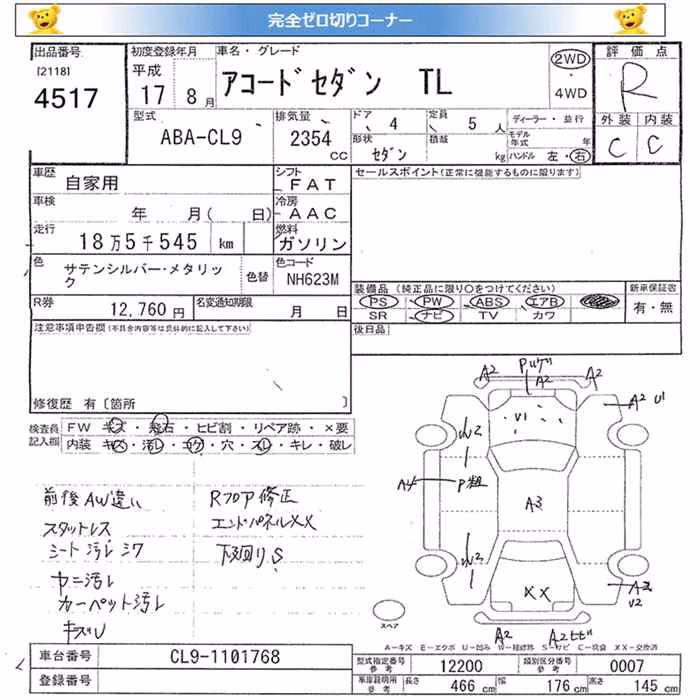 完全ゼロ切りコーナー
出品番号
[2118]
4517
初度登録年月
平成
17 8月
車名・グレード
アコードセダン TL
2WD
・
4WD
評価点
R
外装 内装
C C
型式
ABA-CL9
排気量
2354
CC
ドア 4
定員 5 人
形状 セダン
積載 kg
ディーラー・並行
モデル年式 年
ハンドル 左・右
車歴
自家用
シフト
FAT
セールスポイント(正常に機能するものに限ります)
車検
年 月( 日)
冷房
AAC
走行
18万5千545 km
燃料
ガソリン
色
サテンシルバー・メタリック
色替
色コード
NH623M
装備品 (純正品に限り○をつけてください)
PS PW ABS エアB
SR ナビ TV カワ
新車保証書
有・無
R券
12,760円
名変通知期限
月 日
後日品
注意事項申告欄(不具合内容等は具体的に記入して下さい)
修復歴 有〔箇所 〕
検査員
記入欄
FW キズ・飛石・ヒビ割・リペア跡・×要
内装 キズ・汚レ・コゲ・穴・スレ・キレ・破レ
前後AW違い
スタットレス
シート汚レシワ
ヤニ汚レ
カーペット汚レ
キズU
Rフロア修正
エンドパネルXX
下廻りS
A2 A2 A2
U1
A2 U1
A4
P粗
A3
XX
U2
A2
A2ヒビ
スペア
A-キズ E-エクボ U-凹み W-補修跡 S-サビ C-腐食 XX-交換済
車台番号
CL9-1101768
登録番号
型式指定番号
参考
12200
類別区分番号
参考
0007
車庫証明用
参考
長さ 466 cm
幅 176 cm
高さ 145 cm